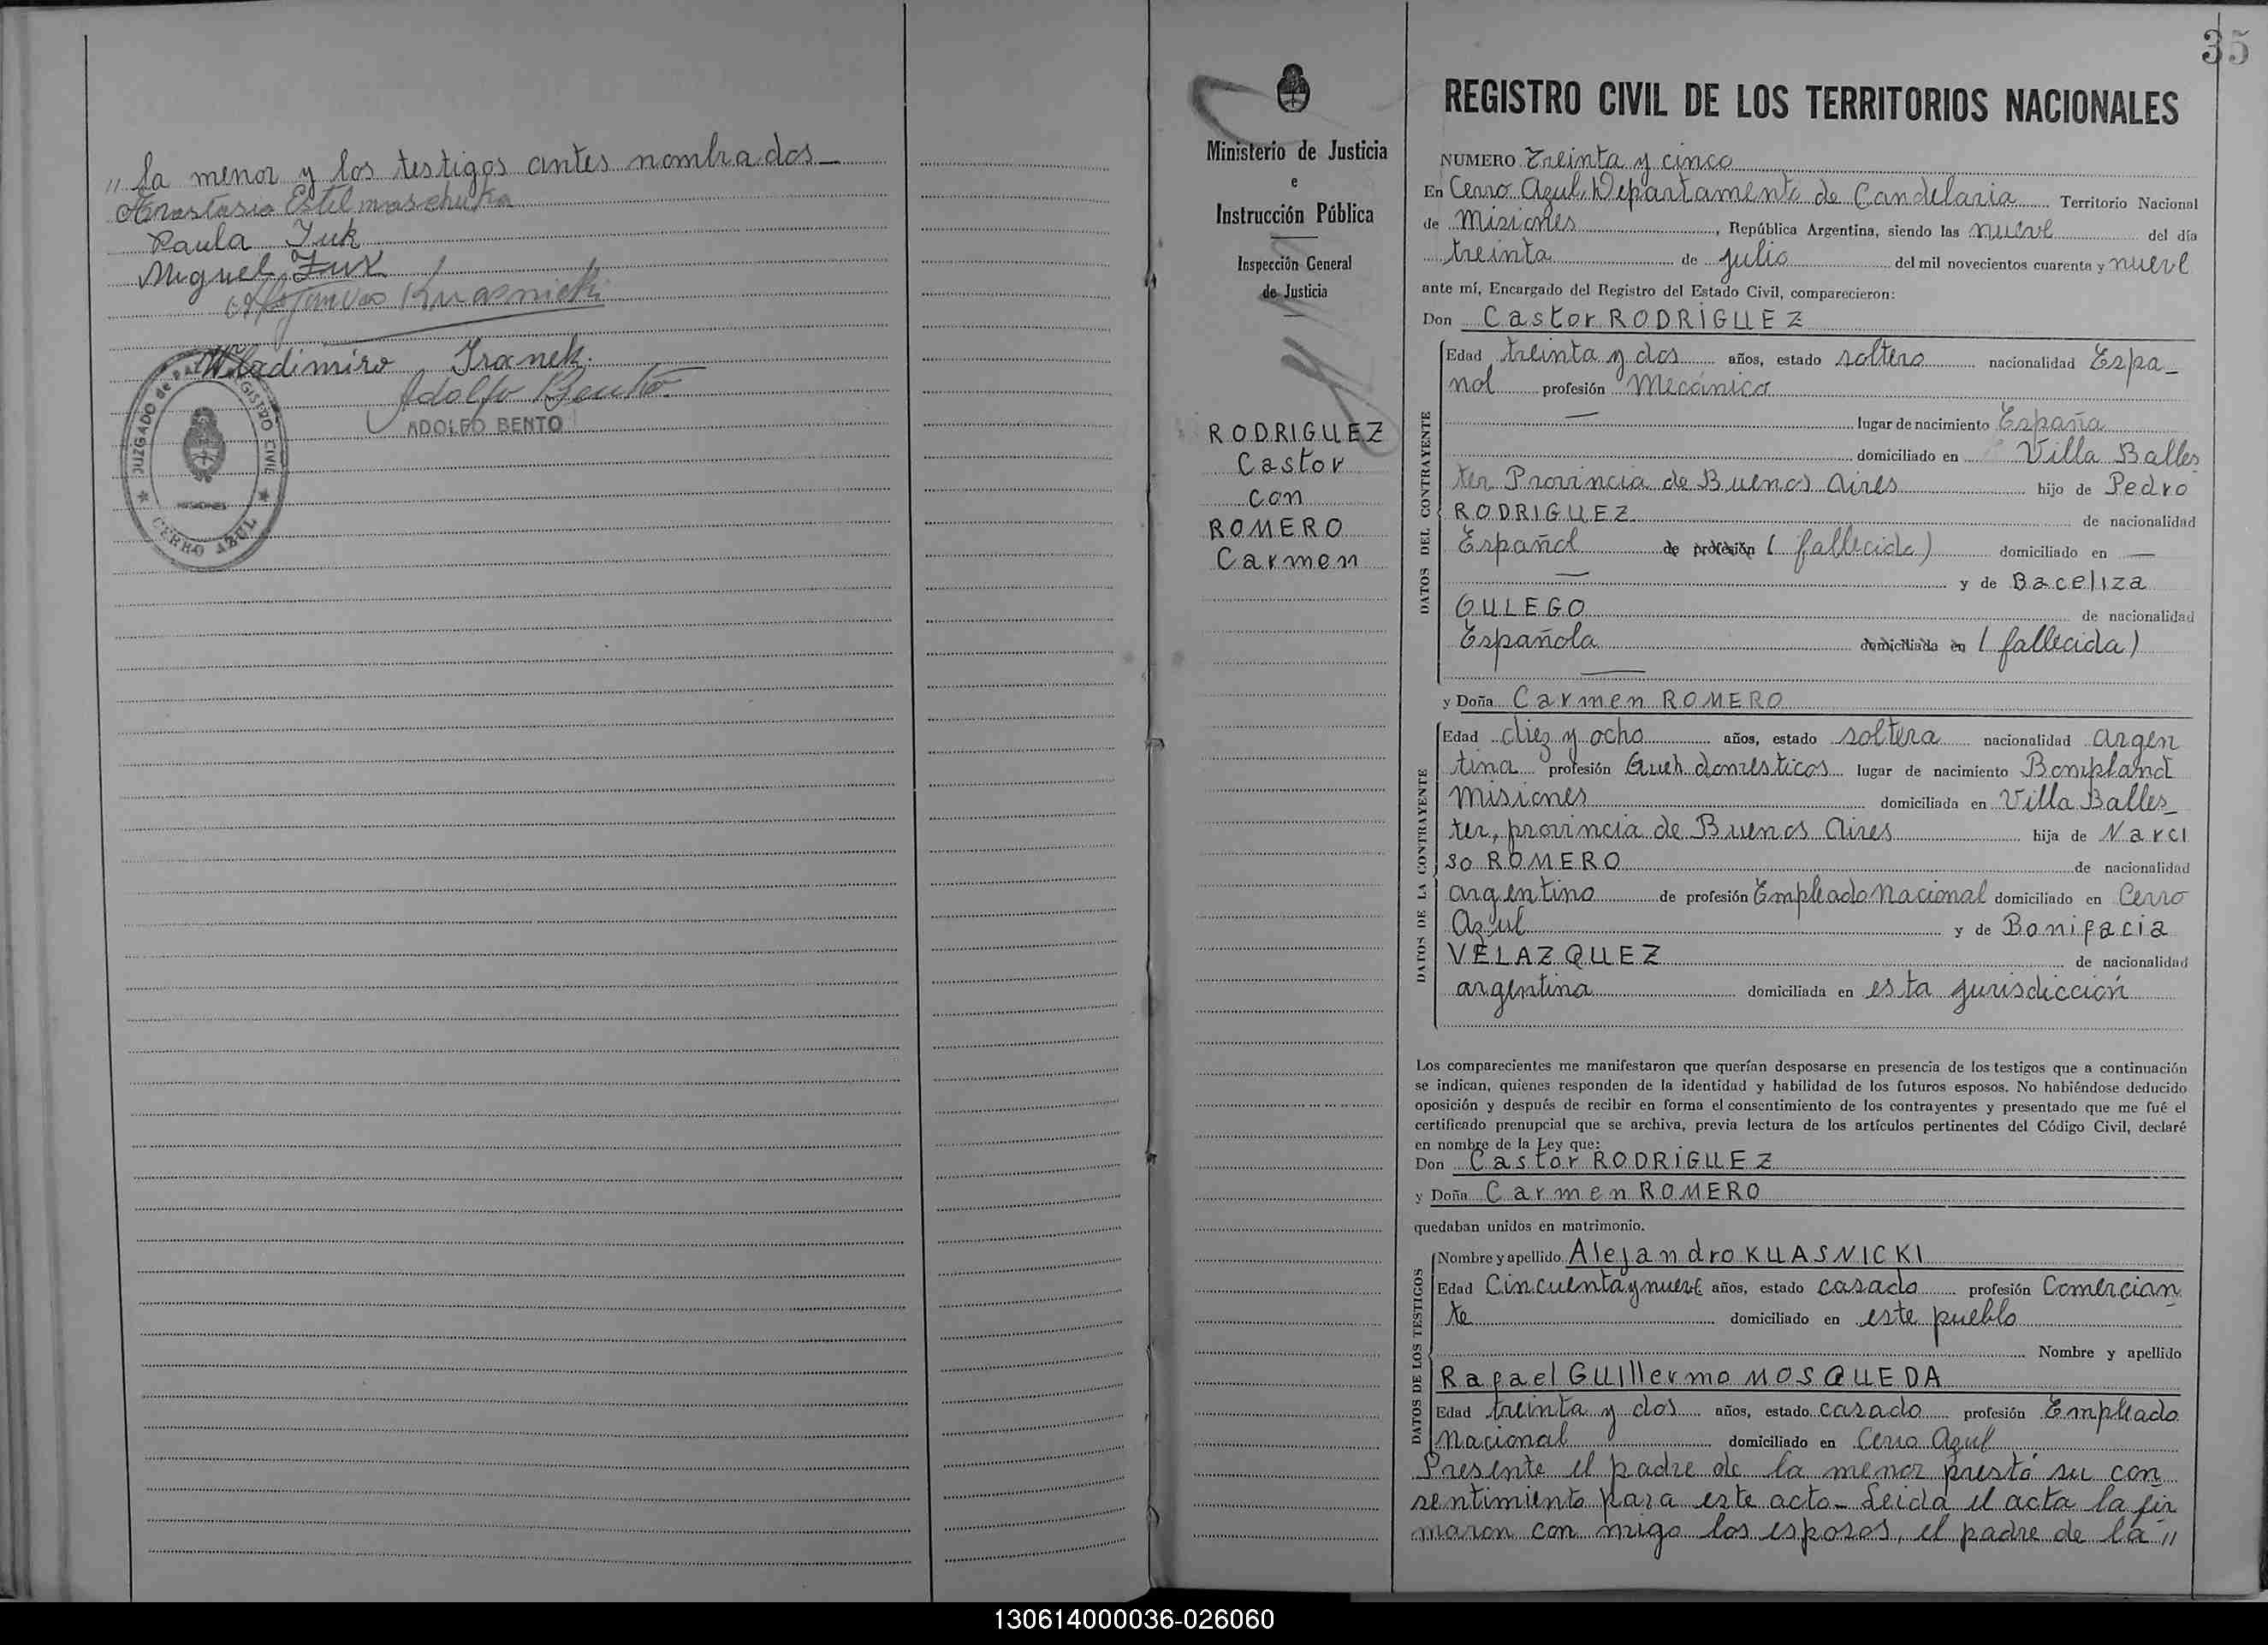 „ la menor y los testigos antes nombrados_
Anastasio Estelmaschuka
Paula Fuk
Miguel Fuk
Krasnicki
Wladimiro Iranek.
Adolfo Bento
ADOLFO BENTO
JUZGADO de PAZ REGISTRO CIVIL
MISIONES
CERRO AZUL
35
Ministerio de Justicia
e
Instrucción Pública
Inspección General
de Justicia
RODRIGUEZ
Castor
con
ROMERO
Carmen
REGISTRO CIVIL DE LOS TERRITORIOS NACIONALES
NUMERO Treinta y cinco
En Cerro Azul, Departamento de Candelaria Territorio Nacional
de Misiones, República Argentina, siendo las nueve del día
treinta de julio del mil novecientos cuarenta y nueve
ante mí, Encargado del Registro del Estado Civil, comparecieron:
Don Castor RODRIGUEZ
DATOS DEL CONTRAYENTE
Edad treinta y dos años, estado soltero nacionalidad Espa_
ñol profesión Mecánico
— lugar de nacimiento España
domiciliado en Villa Balles
ter Provincia de Buenos Aires hijo de Pedro
RODRIGUEZ de nacionalidad
Español de profesión (fallecido) domiciliado en —
— y de Baceliza
GULEGO de nacionalidad
Española domiciliada en (fallecida)
—
y Doña Carmen ROMERO
DATOS DE LA CONTRAYENTE
Edad diez y ocho años, estado soltera nacionalidad argen
tina profesión Queh. domesticos lugar de nacimiento Bonpland
Misiones domiciliada en Villa Balles_
ter, provincia de Buenos Aires hija de Narci
so ROMERO de nacionalidad
argentino de profesión Empleado Nacional domiciliado en Cerro
Azul y de Bonifacia
VELAZQUEZ de nacionalidad
argentina domiciliada en esta jurisdicción
Los comparecientes me manifestaron que querían desposarse en presencia de los testigos que a continuación
se indican, quienes responden de la identidad y habilidad de los futuros esposos. No habiéndose deducido
oposición y después de recibir en forma el consentimiento de los contrayentes y presentado que me fué el
certificado prenupcial que se archiva, previa lectura de los artículos pertinentes del Código Civil, declaré
en nombre de la Ley que:
Don Castor RODRIGUEZ
y Doña Carmen ROMERO
quedaban unidos en matrimonio.
DATOS DE LOS TESTIGOS
Nombre y apellido Alejandro KUASNICKI
Edad Cincuenta y nueve años, estado casado profesión Comercian
te domiciliado en este pueblo
Nombre y apellido
Rafael Guillermo MOSQUEDA
Edad treinta y dos años, estado casado profesión Empleado
Nacional domiciliado en Cerro Azul
Presente el padre de la menor prestó su con
sentimiento para este acto_ Leida el acta la fir
maron con migo los esposos, el padre de la „
130614000036-026060